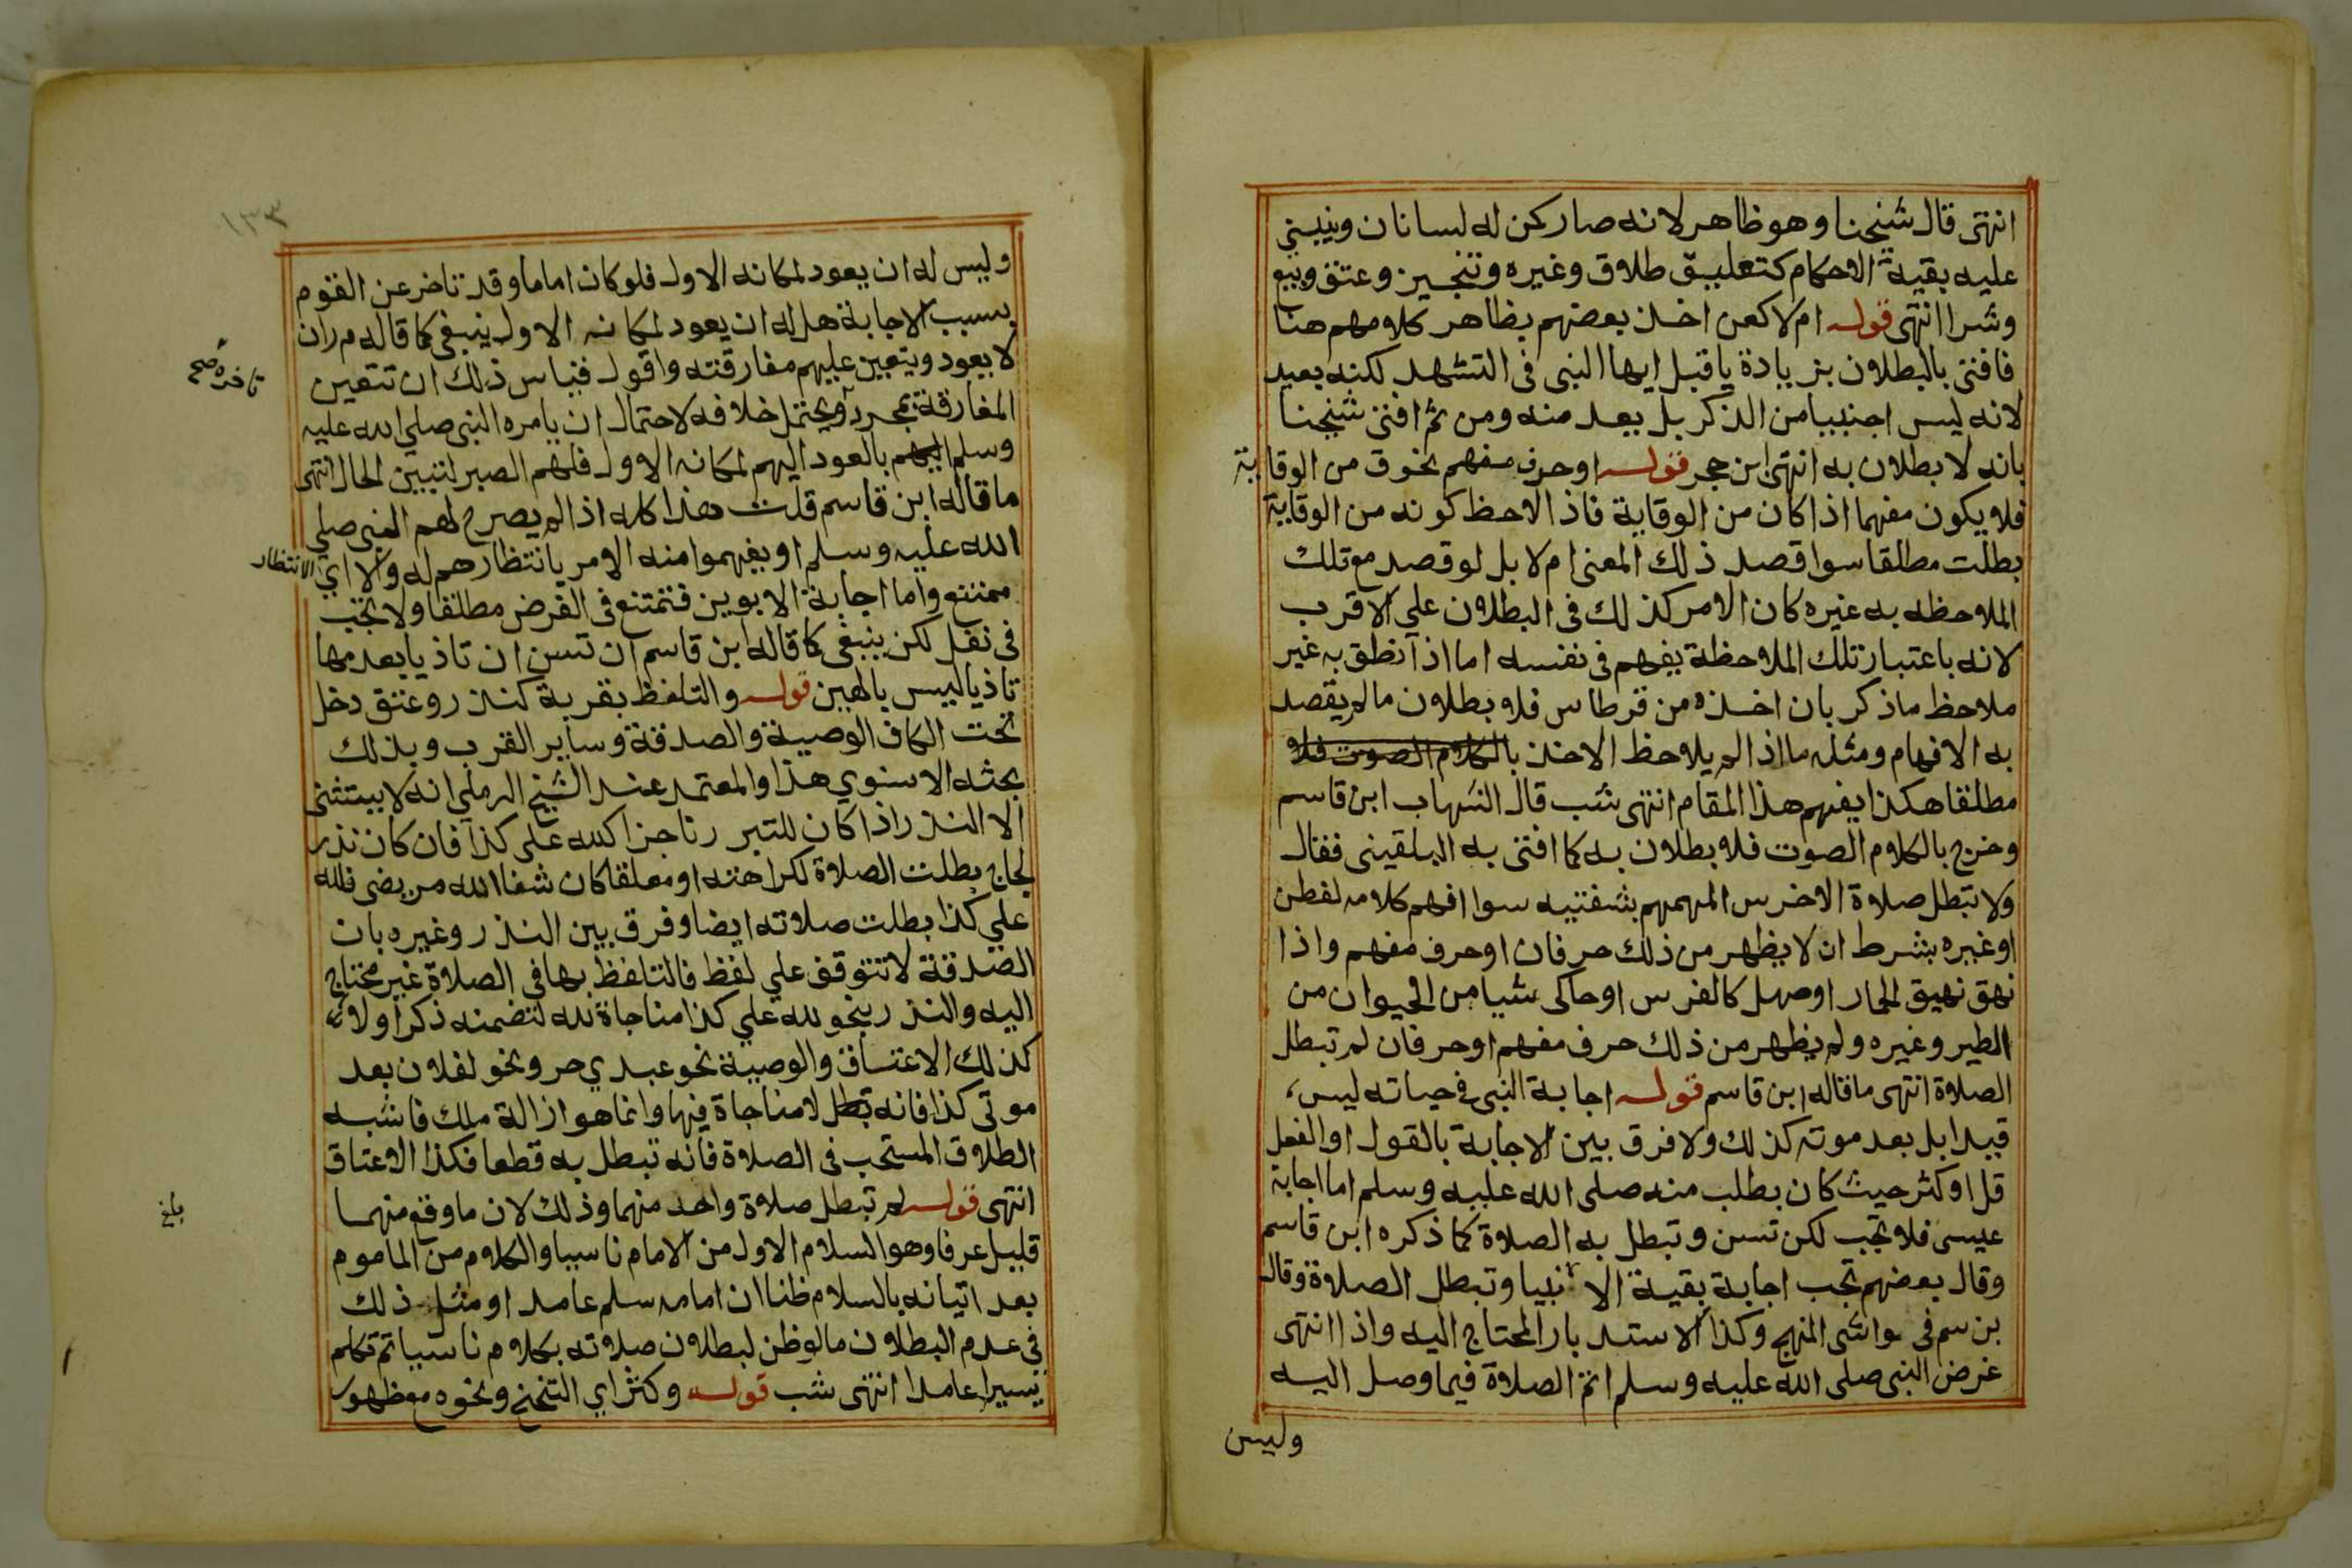 انتهى قال شيخنا وهو ظاهر لانه صار كمن له لسانان وينبني
عليه بقية الاحكام كتعليق طلاق وغيره وتنجيز وعتق وبيع
وشرا انتهى قوله ام لا كعن اخذ بعضهم بظاهر كلامهم هنا
فافتى بالبطلان بزيادة يا قبل ايها النبى فى التشهد لكنه بعيد
لانه ليس اجنبيا من الذكر بل يعد منه ومن ثم افتى شيخنا
بانه لا بطلان به انتهى ابن حجر قوله او حرف مفهم نحو ق من الوقاية
فلا يكون مفهما اذا كان من الوقاية فاذا لاحظ كونه من الوقاية
بطلت مطلقا سوا قصد ذلك المعنى ام لا بل لو قصد مع تلك
الملاحظه به غيره كان الامر كذلك فى البطلان علي الاقرب
لانه باعتبار تلك الملاحظة يفهم فى نفسه اما اذا نطق به غير
ملاحظ ماذكر بان اخذه من قرطاس فلا بطلان مالم يقصد
به الافهام ومثله ما اذا لم يلاحظ الاخذ بالكلام الصوت فلا
مطلقا هكذا يفهم هذا المقام انتهى شب قال الشهاب ابن قاسم
وخرج بالكلام الصوت فلا بطلان به كما افتى به البلقينى فقال
ولا تبطل صلاة الاخرس المهمهم بشفتيه سوا افهم كلامه لفطن
او غيره بشرط ان لا يظهر من ذلك حرفان او حرف مفهم واذا
نهق نهيق الحمار او صهل كالفرس او حاكى شيا من الحيوان من
الطير وغيره ولم يظهر من ذلك حرف مفهم او حرفان لم تبطل
الصلاة انتهى ما قاله ابن قاسم قوله اجابة النبى فى حياته ليس
قيدا بل بعد موته كذلك ولا فرق بين الاجابة بالقول او الفعل
قل او كثر حيث كان بطلب منه صلى الله عليه وسلم اما اجابة
عيسى فلا تجب لكن تسن وتبطل به الصلاة كما ذكره ابن قاسم
وقال بعضهم تجب اجابة بقية الانبيا وتبطل الصلاة وقال
بن سم فى حواشى المنهج وكذا الاستدبار المحتاج اليه واذا انتهى
غرض النبى صلى الله عليه وسلم اتم الصلاة فيما وصل اليه
وليس
١٣٣
وليس له ان يعود لمكانه الاول فلو كان اماما وقد تاخر عن القوم
بسبب الاجابة هل له ان يعود لمكانه الاول ينبغى كما قاله م ر ان
لا يعود ويتعين عليهم مفارقته واقول قياس ذلك ان تتعين
المفارقة بمجرد ويحتمل خلافه لاحتمال ان يامره النبى صلي الله عليه
تاخره صح
وسلم بالعود اليهم لمكانه الاول فلهم الصبر لتبين الحال انتهى
ما قاله ابن قاسم قلت هذا كله اذا لم يصرح لهم النبى صلي
الله عليه وسلم او يفهموا منه الامر بانتظارهم له والا اي الانتظار
ممتنع واما اجابة الابوين فتمتنع فى الفرض مطلقا ولا تجب
فى نفل لكن ينبغى كما قاله ابن قاسم ان تسن ان تاذيا بعدمها
تاذيا ليس بالهين قوله والتلفظ بقربة كنذر وعتق دخل
تحت الكاف الوصية والصدقة وساير القرب وبذلك
بحثه الاسنوي هذا والمعتمد عند الشيخ الرملي انه لا يستثنى
الا النذر اذا كان للتبرر ناجزا كلله على كذا فان كان نذر
لجاج بطلت الصلاة لكراهته او معلقا كان شفا الله مريضى فلله
علي كذا بطلت صلاته ايضا وفرق بين النذر وغيره بان
الصدقة لا تتوقف علي لفظ فالتلفظ بها فى الصلاة غير محتاج
اليه والنذر بنحو لله علي كذا مناجاة لله لتضمنه ذكرا ولا
كذلك الاعتاق والوصية نحو عبدي حر ونحو لفلان بعد
موتى كذا فانه تبطل لا مناجاة فيها وانما هو ازالة ملك فاشبه
الطلاق المستحب فى الصلاة فانه تبطل به قطعا فكذا الاعتاق
انتهى قوله لم تبطل صلاة واحد منهما وذلك لان ما وقع منهما
بلغ
قليل عرفا وهو السلام الاول من الامام ناسيا والكلام من الماموم
بعد اتيانه بالسلام ظنا ان امامه سلم عامدا ومثل ذلك
فى عدم البطلان مالو ظن لبطلان صلاته بكلام ناسيا ثم تكلم
يسيرا عامدا انتهى شب قوله وكثر اي التنحنح ونحوه مع ظهور